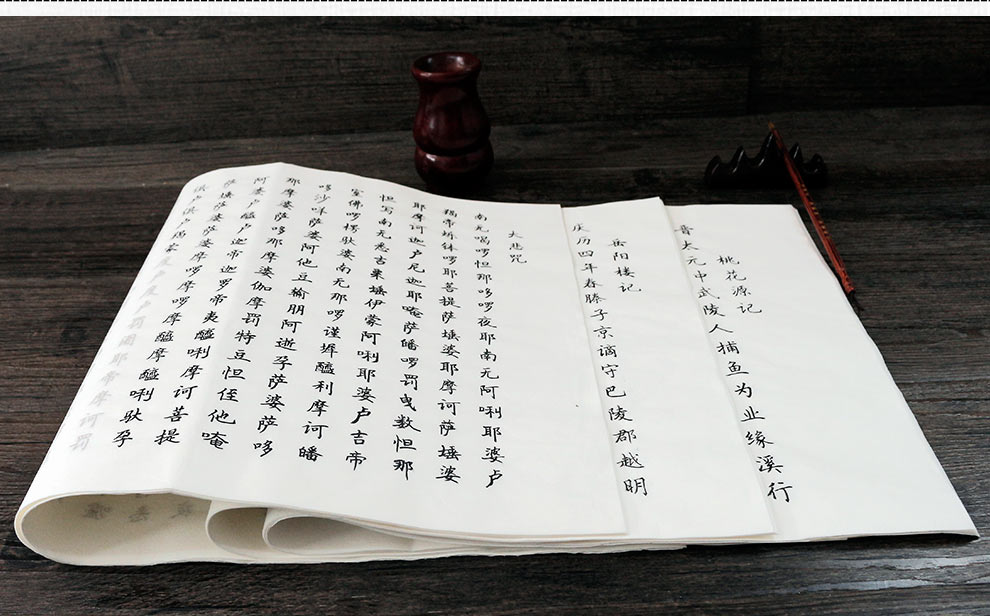 桃花源记
晋太元中武陵人捕鱼为业缘溪行
岳阳楼记
庆历四年春滕子京谪守巴陵郡越明
大悲咒
南无喝啰怛那哆啰夜耶南无阿唎耶婆卢
羯帝烁钵啰耶菩提萨埵婆耶摩诃萨埵婆
耶摩诃迦卢尼迦耶唵萨皤啰罚曳数怛那
怛写南无悉吉栗埵伊蒙阿唎耶婆卢吉帝
室佛啰楞驮婆南无那啰谨墀醯利摩诃皤
哆沙咩萨婆阿他豆输朋阿逝孕萨婆萨哆
那摩婆萨哆那摩婆伽摩罚特豆怛侄他唵
阿婆卢醯卢迦帝迦罗帝夷醯唎摩诃菩提
萨埵萨婆萨婆摩啰摩啰摩醯摩醯唎驮孕
俱卢俱卢羯蒙度卢度卢罚阇耶帝摩诃罚